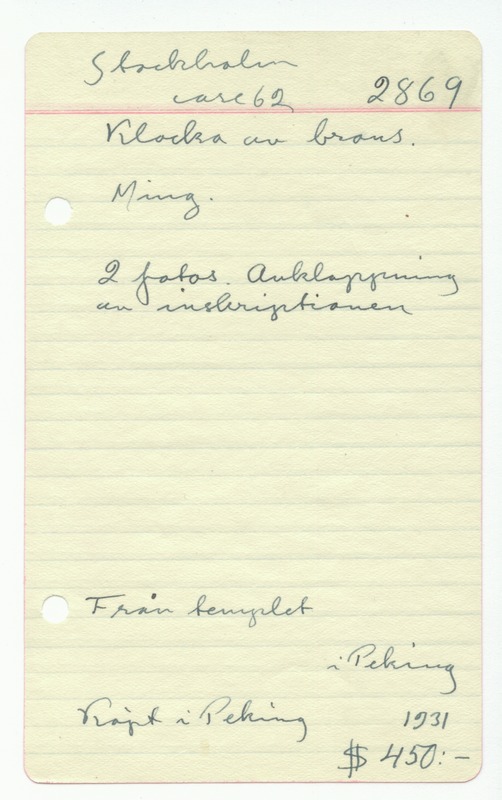 Stockholm
case 62 2869
Klocka av brons.
Ming.
2 fotos. Avklappning
av inskriptionen
Från templet
i Peking
Köpt i Peking 1931
$ 450:-